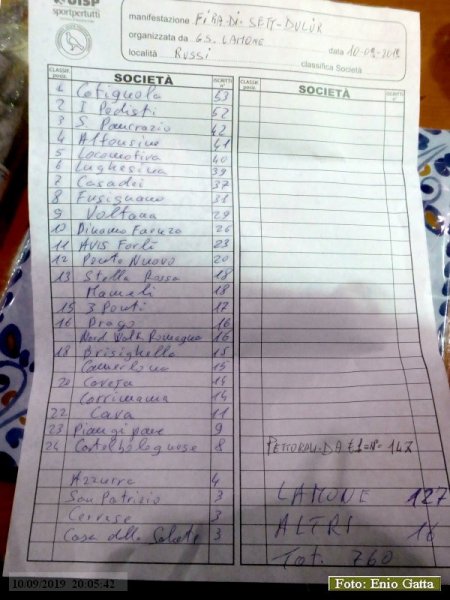 UISP
sportpertutti
manifestazione FIRA-DI-SETT-DULUR
organizzata da G.S. LAMONE
data 10-09-2019
località RUSSI
classifica Società
CLASSIF. posiz. SOCIETÀ ISCRITTI n° CLASSIF. posiz. SOCIETÀ ISCRITTI n°
1 Cotignola 53
2 I Podisti 52
3 S. Pancrazio 42
4 Alfonsine 41
5 Locomotiva 40
6 Lughesina 39
7 Casadei 37
8 Fusignano 31
9 Voltana 29
10 Dinamo Faenza 26
11 AVIS Forlì 23
12 Ponte Nuovo 20
13 Stella Rossa 18
Mameli 18
15 3 Ponti 17
16 Drago 16
Nord Walk Romagna 16
18 Brisighella 15
Camerlona 15
20 Covesa 14
Corrimama 14
22 Cava 11
23 Piangipane 9
24 Castelbolognese 8 PETTORALI DA €1=N° 147
Azzurra 4
San Patrizio 3 LAMONE 127
Cervese 3 ALTRI 16
Casa della Salute 3 Tot. 760
10/09/2019 20:05:42
Foto: Enio Gatta